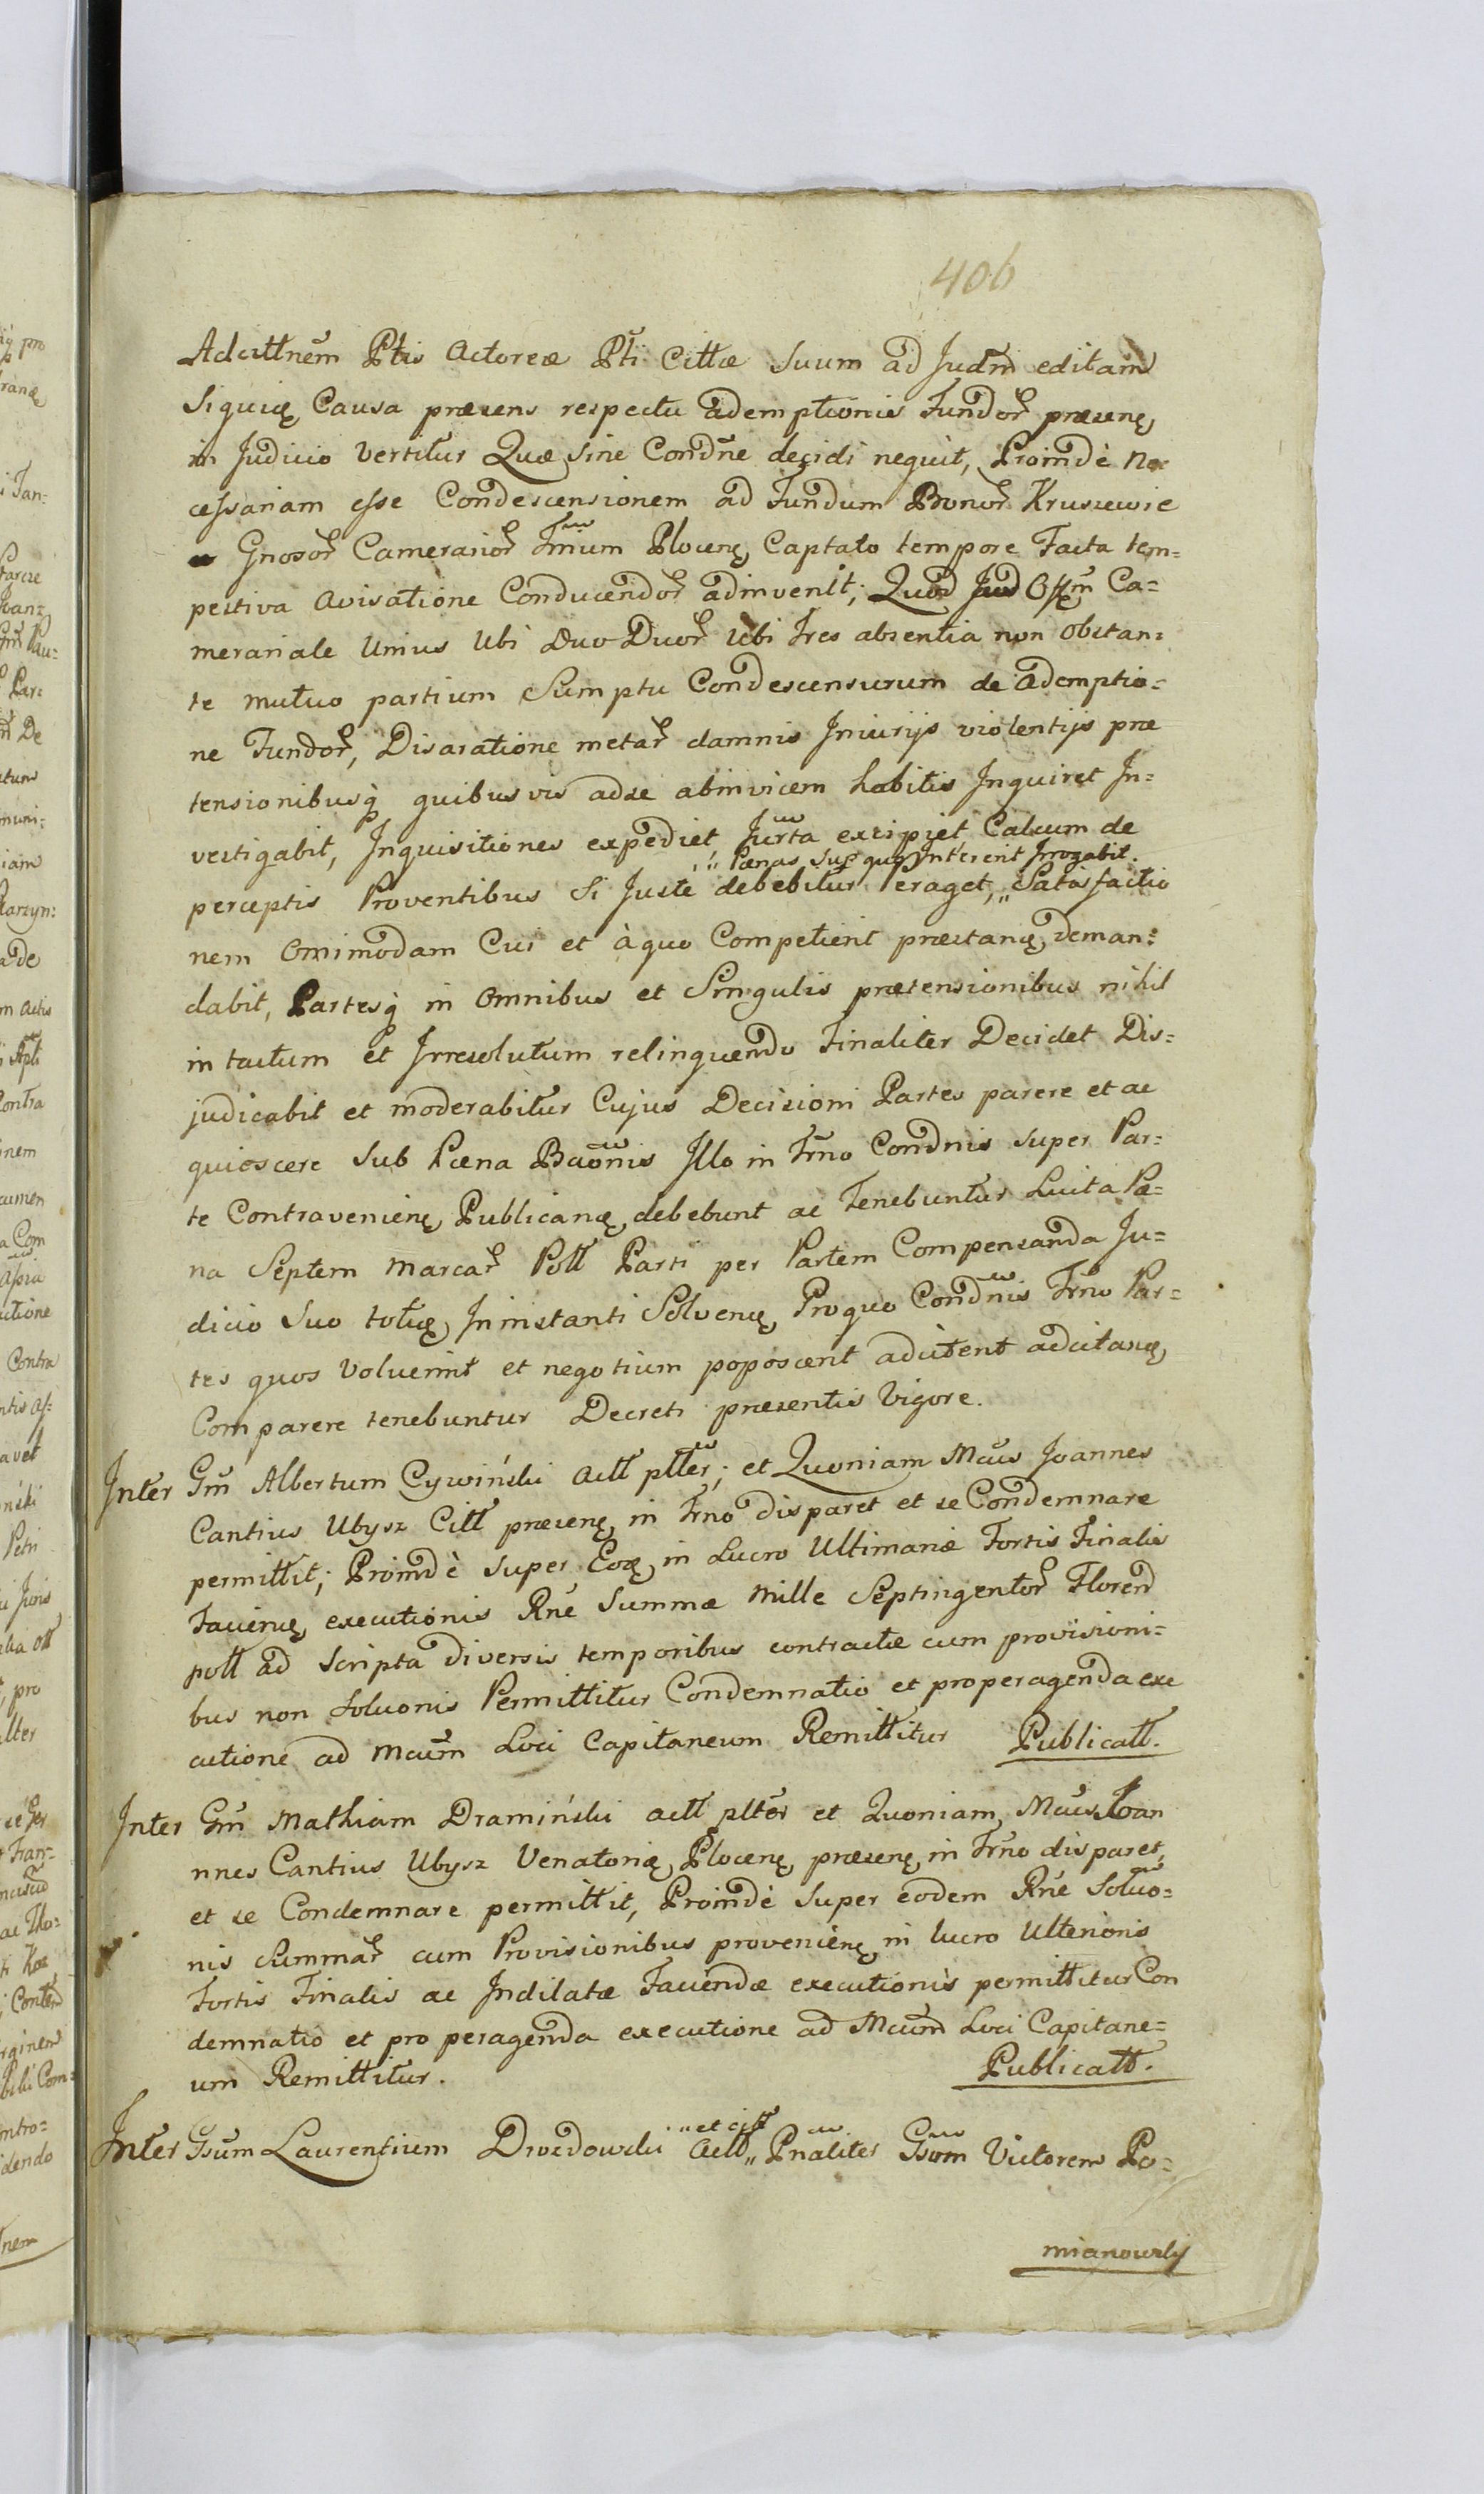 406
Adcittnem Ptis Actoreæ Pti Cittæ Suum ad Judm editam
Siquię Causa præsens respectu ademptionis Fundor præsenę
in Judicio Vertitur Quæ sine Condne decidi nequit, Proindè Ne
cessariam esse Condescensionem ad Fundum Bonor Kruszewie
Gnosor Camerarior Trium Plocenę Captato tempore Facta tem=
pestiva Avisatione Conducendor adinvenit; Quod Jud Ca=
merariale Unius Ubi Duo Duor Ubi Tres absentia non Obstan=
te mutuo partium Sumptu Condescensurum de Ademptio=
ne Fundor, Disaratione metar damnis Iniurijs violentijs præ
tensionibusq quibusvis adse abinvicem habitis Inquiret In=
vestigabit, Inquisitiones expediet Jurta excipiet Calcum de
,,Pænas Sup quos Intererit Irrogabit.
perceptis Proventibus Si Juste debebitur Peraget,,, Satisfactio
nem Omimodam Cui et àquo Competierit præstanę deman=
dabit, Partesq in Omnibus et Singulis prætensionibus nihil
in tactum et Irresolutum relinquendo Finaliter Decidet Dis=
judicabit et moderabitur Cujus Decisioni Partes parere et ac
quiescere Sub Pæna Baonis Illo in Trno Condnis super Par=
te Contravenienę Publicanę debebunt ac Tenebuntur Luita Pæ=
na Septem Marcar Poll Parti per Partem Compensanda Ju=
dicio Suo totuę Ininstanti Solvenę Proquo Condnis Trno Par=
tes quos Voluerint et negotium poposcerit adcitent adcitanę
Comparere tenebuntur Decreti præsentis Vigore.
Inter Gm Albertum Cywiński Actt ptter; et Quoniam Mcus Joannes
Cantius Ubysz Citt præsenę in Trno disparet et se Condemnare
permittit; Proindè super Eoę in Lucro Ultimariæ Fortis Finalis
Faciendę executionis Rne Summæ Mille Septingentor Floren
poll ad Scripta diversis temporibus contractæ cum provisioni=
bus non Soluonis Permittitur Condemnatio et properagenda exe
cutione ad Mcum Loci Capitaneum Remittitur Publicatt.
Inter Gm Mathiam Dramiński actt ptter et Quoniam Mcus Joan
nnes Cantius Ubysz Venatorię Plocenę præsenę in Trno disparet,
et se Condemnare permittit, Proindè super eodem Rne Soluo=
nis Summar cum Provisionibus provenienę in lucro Ulterioris
Fortis Finalis ac Indilatæ Faciendæ executionis permittitur Con
demnatio et pro peragenda executione ad Mcum Loci Capitane=
um Remittitur. Publicatt.
,,et citt
Inter Gsum Laurentium Drozdowski Actt,, Pnaliter Gsum Victorem Po=
mianowskj